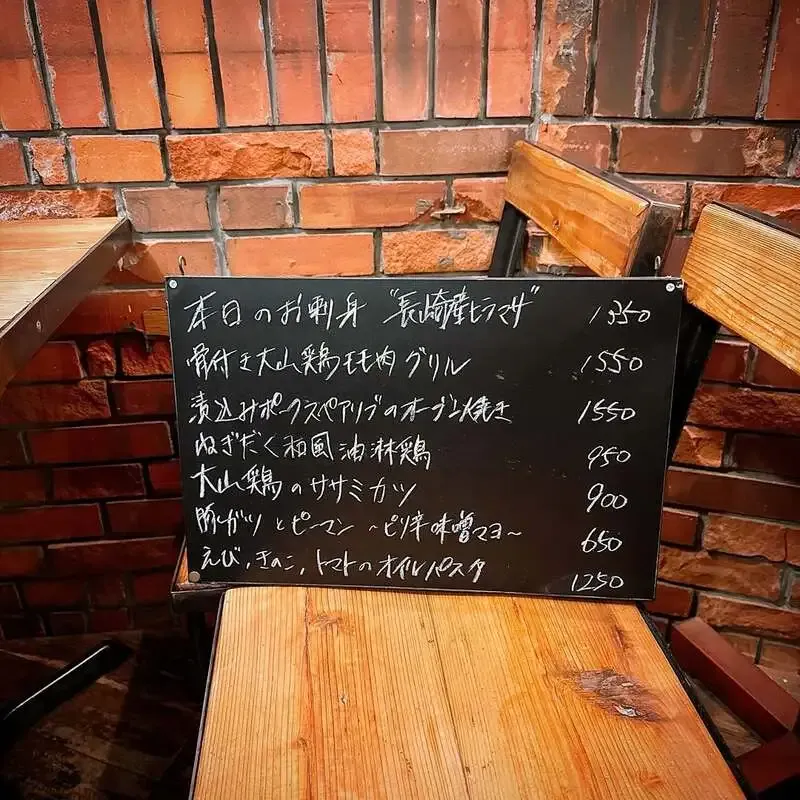 本日のお刺身 "長崎産ヒラマサ" 1350
骨付き大山鶏モモ肉グリル 1550
漬込みポークスペアリブのオーブン焼き 1550
ねぎだく和風油淋鶏 950
大山鶏のササミカツ 900
豚ガツとピーマン ~ピリ辛味噌マヨ~ 650
えび、きのこ、トマトのオイルパスタ 1250